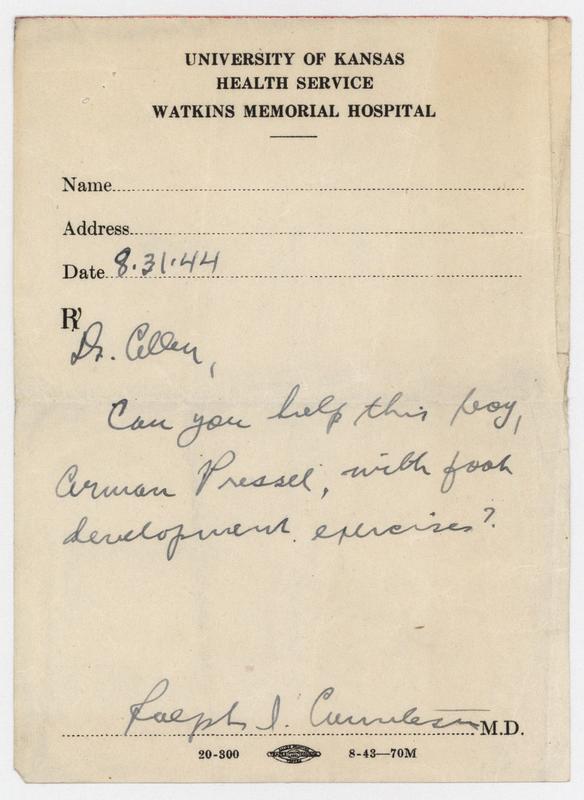 UNIVERSITY OF KANSAS
HEALTH SERVICE
WATKINS MEMORIAL HOSPITAL
Name
Address
Date 8·31·44
℞
Dr. Allen,
Can you help this boy,
Arman Pressel, with foot
development exercises?
Ralph I. Canuteson M.D.
20-300 8-43—70M